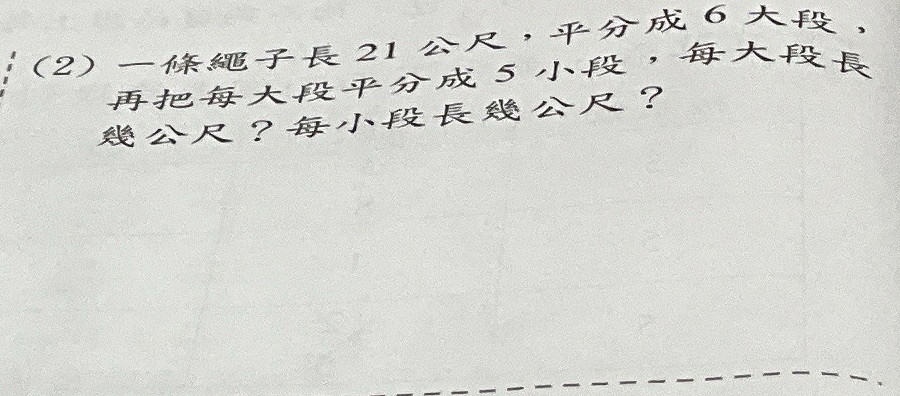 (2) 一條繩子長 21 公尺，平分成 6 大段、
再把每大段平分成 5 小段，每大段長
幾公尺？每小段長幾公尺？